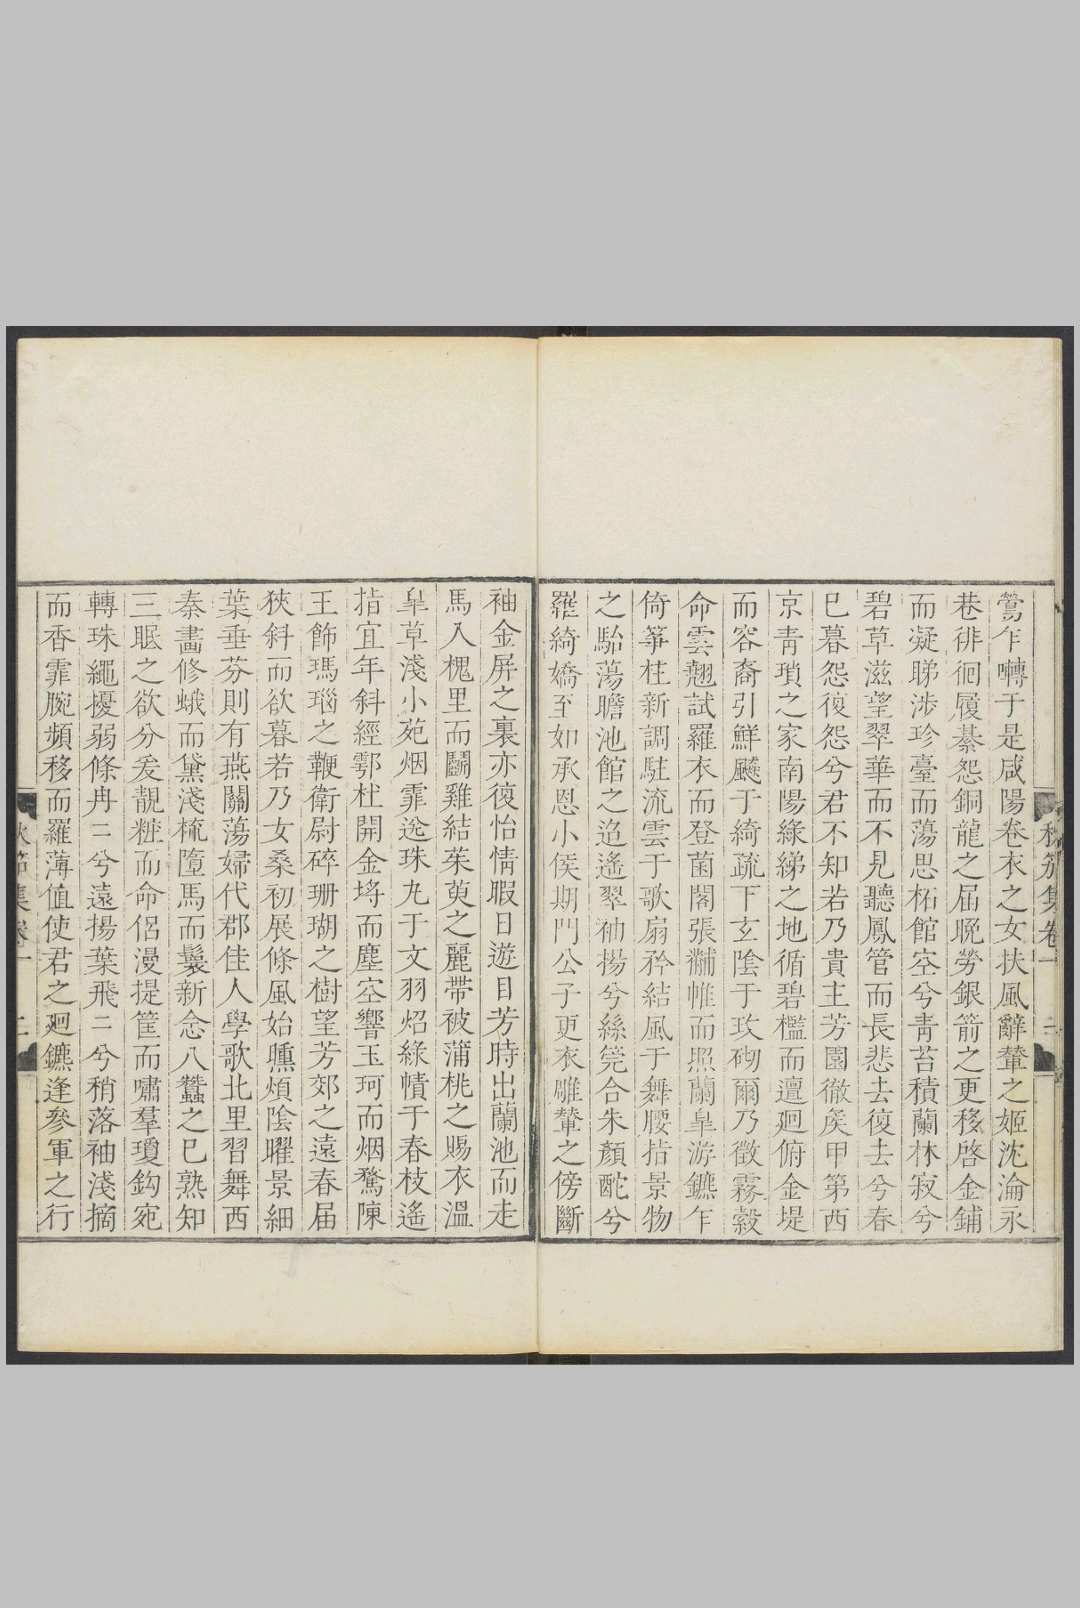 秋笳集卷一 二
鶯乍囀于是咸陽卷衣之女扶風辭輦之姬沈淪永
巷徘徊履綦怨銅龍之屆晚勞銀箭之更移啓金鋪
而凝睇涉珍臺而蕩思柘館空兮青苔積蘭林寂兮
碧草滋望翠華而不見聽鳳管而長悲去復去兮春
已暮怨復怨兮君不知若乃貴主芳園徹矦甲第西
京青瑣之家南陽綠綈之地循碧檻而邅廻俯金堤
而容裔引鮮飈于綺疏下玄陰于玫砌爾乃徵霧縠
命雲翹試羅衣而登菌閣張黼帷而照蘭臯游鑣乍
倚箏柱新調駐流雲于歌扇矜結風于舞腰指景物
之駘蕩瞻池館之迢遙翠袖揚兮絲筦合朱顏酡兮
羅綺嬌至如承恩小矦期門公子更衣雕輦之傍斷
袖金屏之裏亦復怡情暇日遊目芳時出蘭池而走
馬入槐里而鬭雞結茱萸之麗帶被蒲桃之賜衣溫
臯草淺小苑烟霏逸珠丸于文羽炤綠幘于春枝遙
指宜年斜經鄠杜開金埓而塵空響玉珂而烟騖陳
王飾瑪瑙之鞭衛尉碎珊瑚之樹望芳郊之遠春屆
狹斜而欲暮若乃女桑初展條風始燻煩陰曜景細
葉垂芬則有燕關蕩婦代郡佳人學歌北里習舞西
秦畵修蛾而黛淺梳墮馬而鬟新念八蠶之已熟知
三眠之欲分爰靚粧而命侶漫提筐而嘯羣瓊鈎宛
轉珠繩擾弱條冉二兮遠揚葉飛二兮稍落袖淺摘
而香霏腕頻移而羅薄值使君之廻鑣逢參軍之行
秋笳集卷一 二